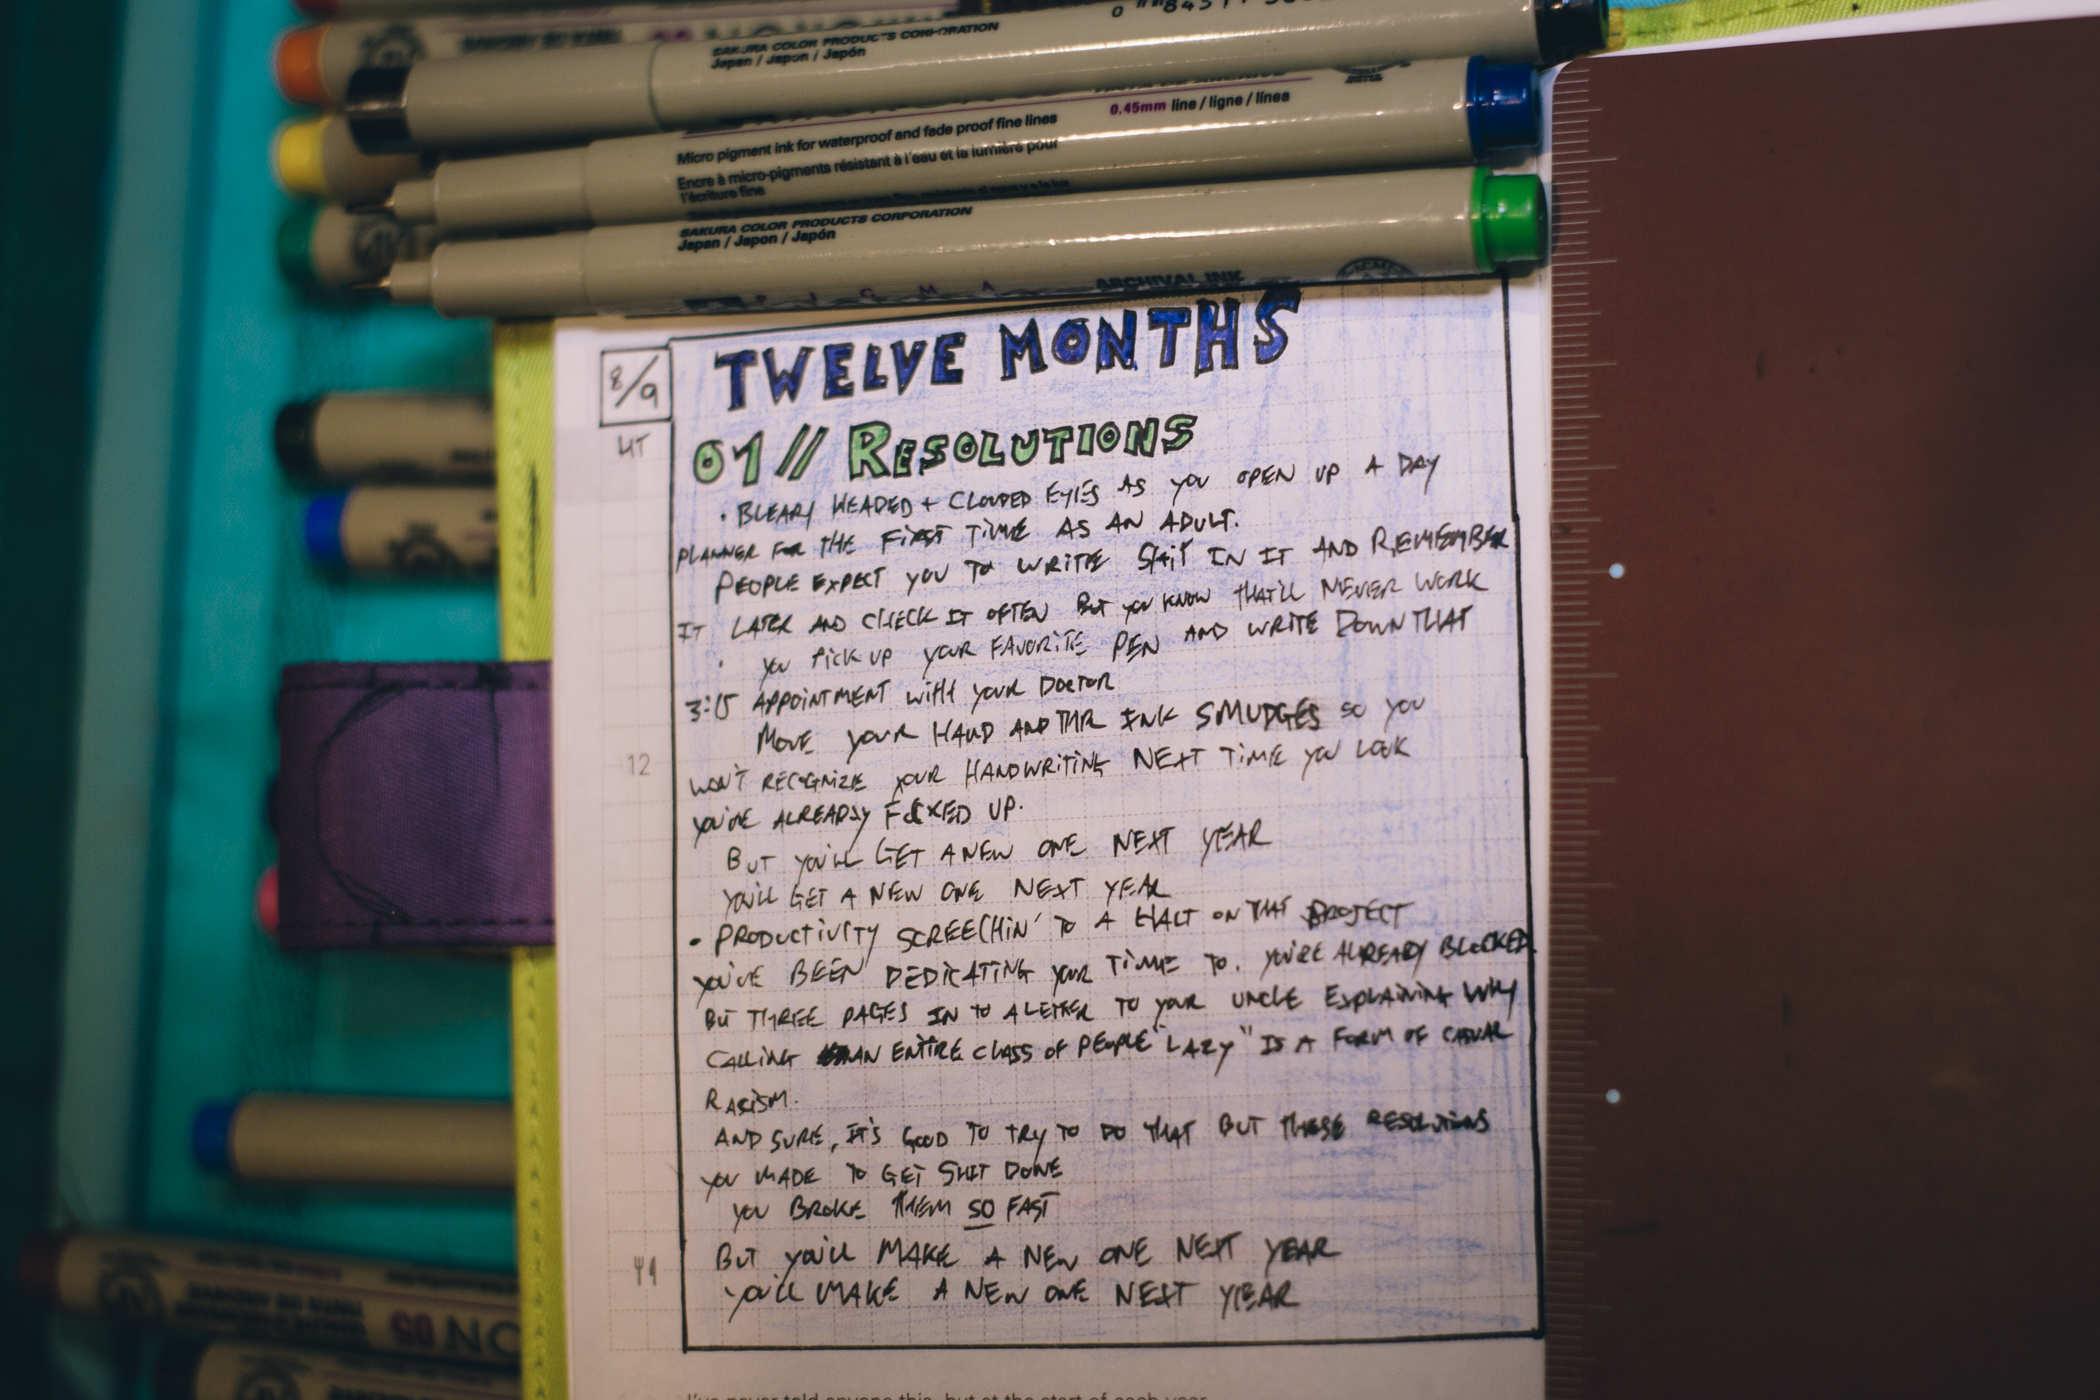 SAKURA COLOR PRODUCTS CORPORATION
Japan / Japon / Japón
0.45mm line / ligne / línea
Micro pigment ink for waterproof and fade proof fine lines
Encre à micro-pigments résistant à l'eau et la lumière pour
l'écriture fine
SAKURA COLOR PRODUCTS CORPORATION
Japan / Japon / Japón
ARCHIVAL INK
8/9
TWELVE MONTHS
01 // RESOLUTIONS
• BLEARY HEADED + CLOUDED EYES AS YOU OPEN UP A DAY
PLANNER FOR THE FIRST TIME AS AN ADULT.
PEOPLE EXPECT YOU TO WRITE SHIT IN IT AND REMEMBER
IT LATER AND CHECK IT OFTEN BUT YOU KNOW THAT'LL NEVER WORK
• YOU PICK UP YOUR FAVORITE PEN AND WRITE DOWN THAT
3:15 APPOINTMENT WITH YOUR DOCTOR
MOVE YOUR HAND AND THE INK SMUDGES SO YOU
12
WON'T RECOGNIZE YOUR HANDWRITING NEXT TIME YOU LOOK
YOU'VE ALREADY FUCKED UP.
BUT YOU'LL GET A NEW ONE NEXT YEAR
YOU'LL GET A NEW ONE NEXT YEAR
• PRODUCTIVITY SCREECHIN' TO A HALT ON THAT PROJECT
YOU'VE BEEN DEDICATING YOUR TIME TO. YOU'RE ALREADY BLOCKED
BUT THREE PAGES IN TO A LETTER TO YOUR UNCLE EXPLAINING WHY
CALLING AN ENTIRE CLASS OF PEOPLE "LAZY" IS A FORM OF CASUAL
RACISM.
AND SURE, IT'S GOOD TO TRY TO DO THAT BUT THESE RESOLUTIONS
YOU MADE TO GET SHIT DONE
YOU BROKE THEM SO FAST
BUT YOU'LL MAKE A NEW ONE NEXT YEAR
YOU'LL MAKE A NEW ONE NEXT YEAR
05